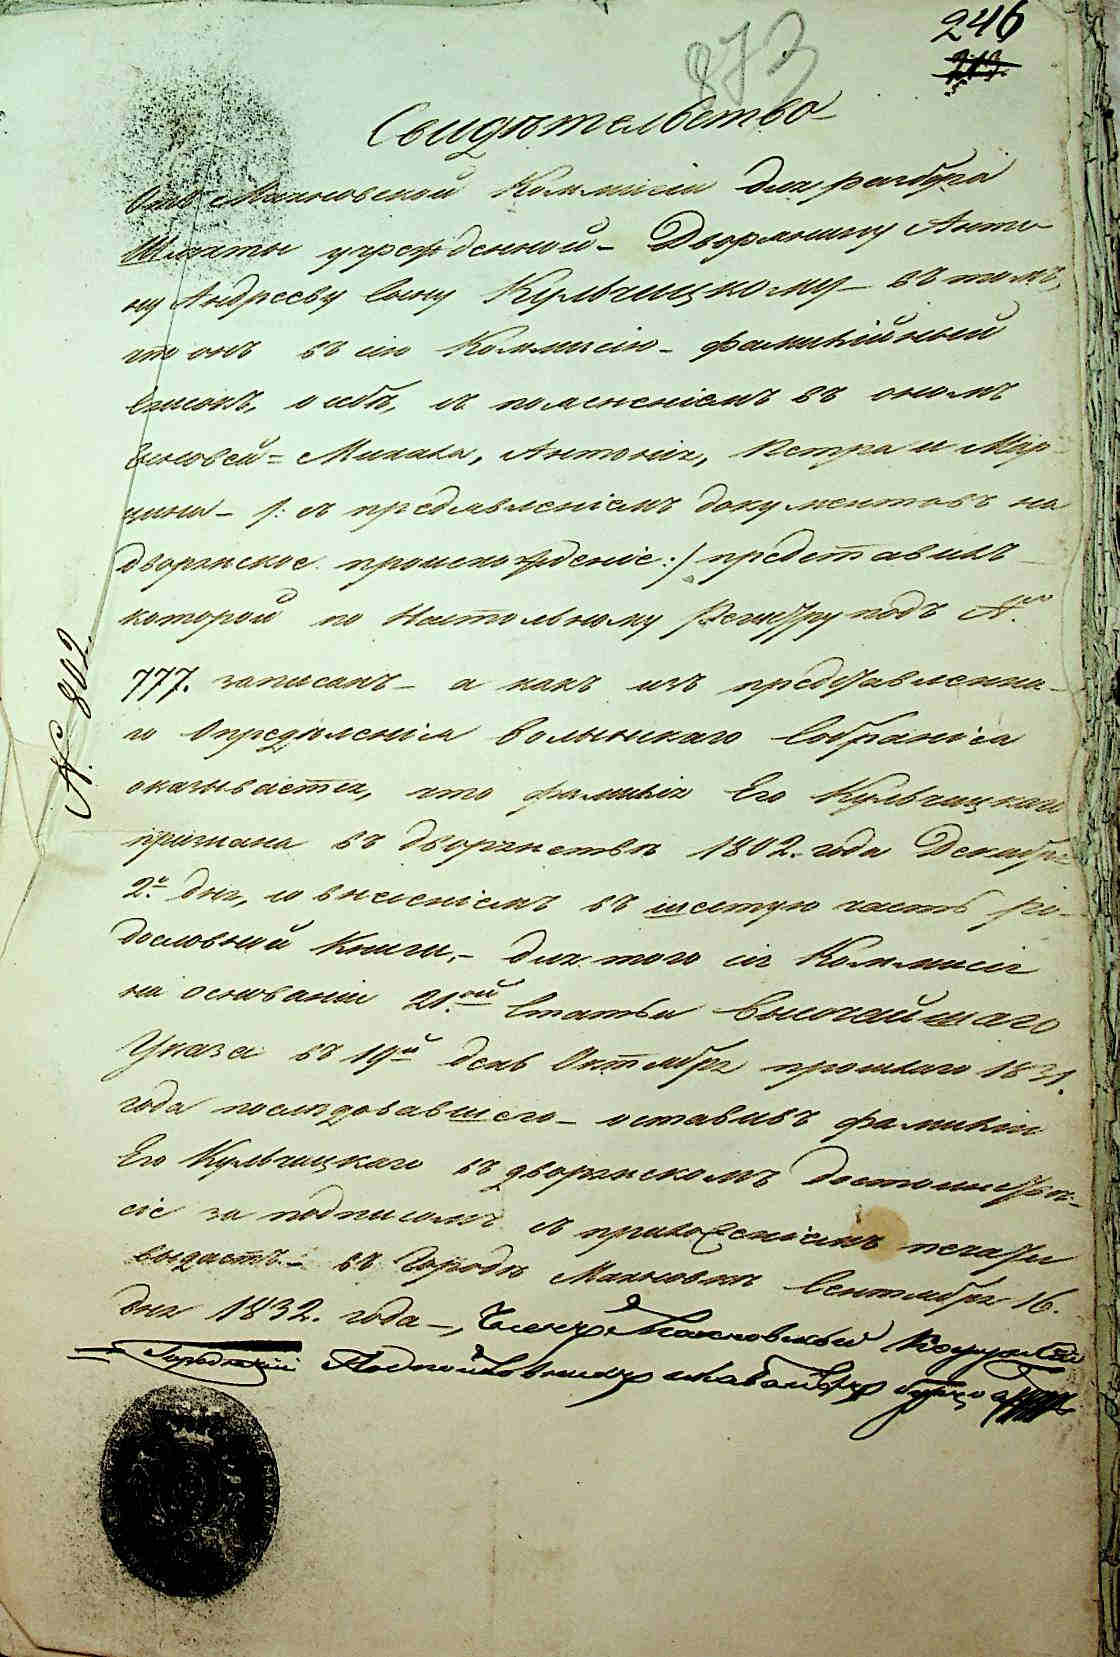 873
246
213.
Свидѣтельство
Отъ Махновской Коммисіи для разбора
Шляхты учрежденной – Дворянину Анто-
ну Андрееву сыну Кульчицкому – въ томъ,
что онъ въ сію Коммисію – фамилійный
списокъ, о себѣ, съ поясненіемъ въ ономъ
сыновей = Михала, Антонія, Петра и Мар-
цина – /: съ предъявленіемъ документовъ на
дворянское происхожденіе :/ представилъ –
которой по Настольному Регистру подъ №
777. записанъ – а какъ изъ представленна-
го Опредѣленія Волынскаго Собранія
оказывается, что фамилія Его Кульчицкаго
признана въ дворянствѣ 1802. года Декабря
2го дня, со внесеніемъ въ шестую часть ро-
дословной Книги, – для того сія Коммисія
на основаніи 21.ой Статьи Высочайшаго
Указа въ 19й день Октября прошлаго 1831.
года послѣдовавшего – оставивъ фамилію
Его Кульчицкаго въ дворянскомъ достоинствѣ –
сіе за подписомъ съ приложеніемъ печати
выдаетъ – въ Городѣ Махновкѣ Сентября 16.
дня 1832. года –, Членъ Махновской
Подполковникъ и Кавалеръ
№. 802